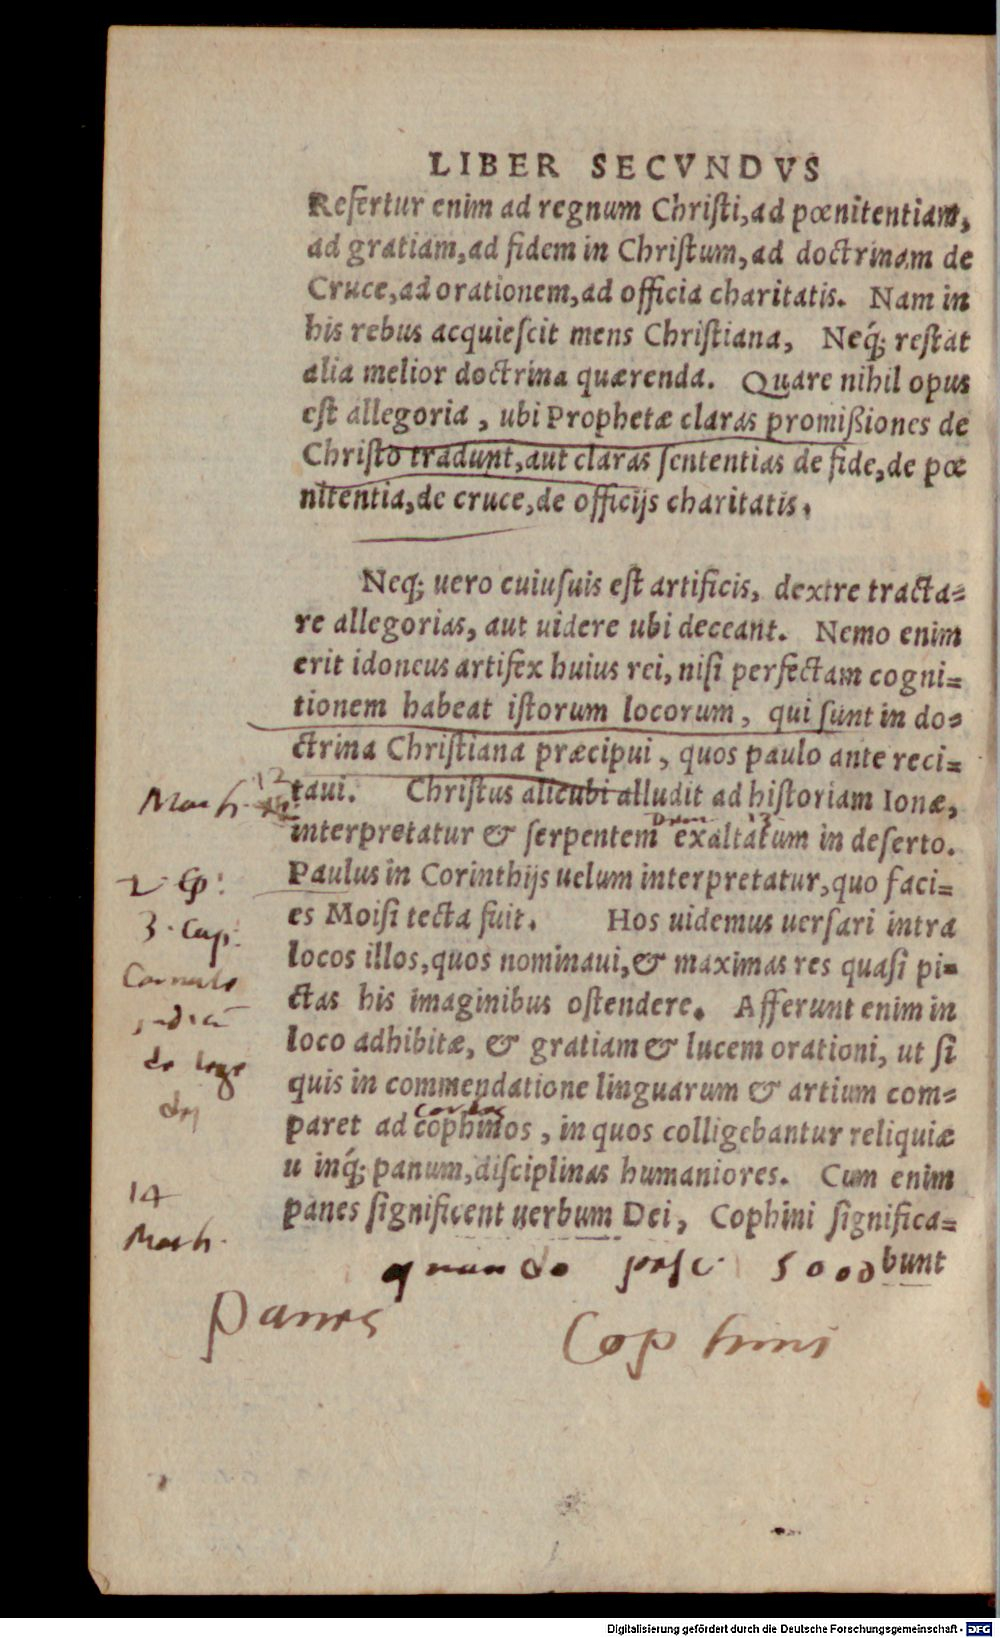 LIBER SECVNDVS
Refertur enim ad regnum Chriſti, ad pœnitentiam,
ad gratiam, ad fidem in Chriſtum, ad doctrinam de
Cruce, ad orationem, ad officia charitatis. Nam in
his rebus acquieſcit mens Chriſtiana, Neq́; reſtat
alia melior doctrina quærenda. Quare nihil opus
eſt allegoria, ubi Prophetæ claras promißiones de
Chriſto tradunt, aut claras ſententias de fide, de pœ
nitentia, de cruce, de officijs charitatis.
Neq; uero cuiuſuis eſt artificis, dextre tracta=
re allegorias, aut uidere ubi deceant. Nemo enim
erit idoneus artifex huius rei, niſi perfectam cogni=
tionem habeat iſtorum locorum, qui ſunt in do=
ctrina Chriſtiana præcipui, quos paulo ante reci=
taui. Chriſtus alicubi alludit ad hiſtoriam Ionæ,
Math. 12
interpretatur & ſerpentem exaltatum in deſerto.
Paulus in Corinthijs uelum interpretatur, quo faci=
2. Ep:
es Moiſi tecta fuit. Hos uidemus uerſari intra
3. Cap:
locos illos, quos nominaui, & maximas res quaſi pi=
ctas his imaginibus oſtendere. Afferunt enim in
loco adhibitæ, & gratiam & lucem orationi, ut ſi
de lege
quis in commendatione linguarum & artium com=
dei
paret ad cophinos, in quos colligebantur reliquiæ
u inq́; panum, diſciplinas humaniores. Cum enim
14
panes ſignificent uerbum Dei, Cophini ſignifica=
Math.
bunt
quando 5000
Panes
Cophini
Digitalisierung gefördert durch die Deutsche Forschungsgemeinschaft - DFG